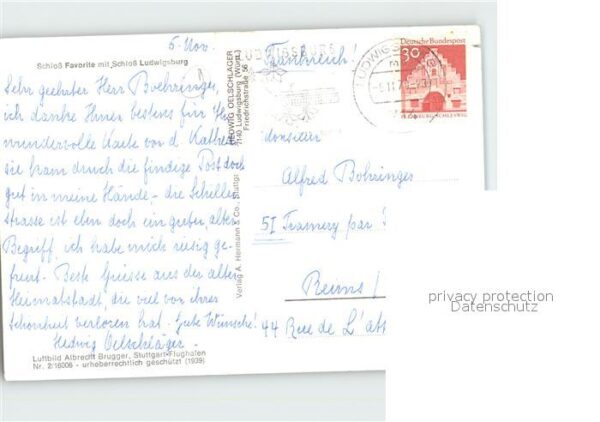 5. Nov.
Schloß Favorite mit Schloß Ludwigsburg
Sehr geehrter Herr Boehringer,
ich danke Ihnen bestens für Ihre
wundervolle Karte von d. Kathedr.
sie kam durch die findige Post doch
gut in meine Hände, - die Schiller
strasse ist eben doch ein guter, alter
Begriff, ich habe mich riesig ge-
freut - Beste Grüsse aus der alten
Heimatstadt, die viel von ihrer
Schönheit verloren hat. Gute Wünsche!
Hedwig Oelschläger.
Luftbild Albrecht Brugger, Stuttgart-Flughafen
Nr. 2/16006 - urheberrechtlich geschützt (1939)
Verlag A. Hermann & Co., Stuttgart
HEDWIG OELSCHLÄGER
7140 Ludwigsburg (Württ.)
Friedrichstraße 56
LUDWIGSBURG
LUDWIGSB
Deutsche Bundespost
30
Frankreich!
Monsieur
Alfred Bohringer
51 Tramery par
Reims /
44 Rue de L'
privacy protection
Datenschutz